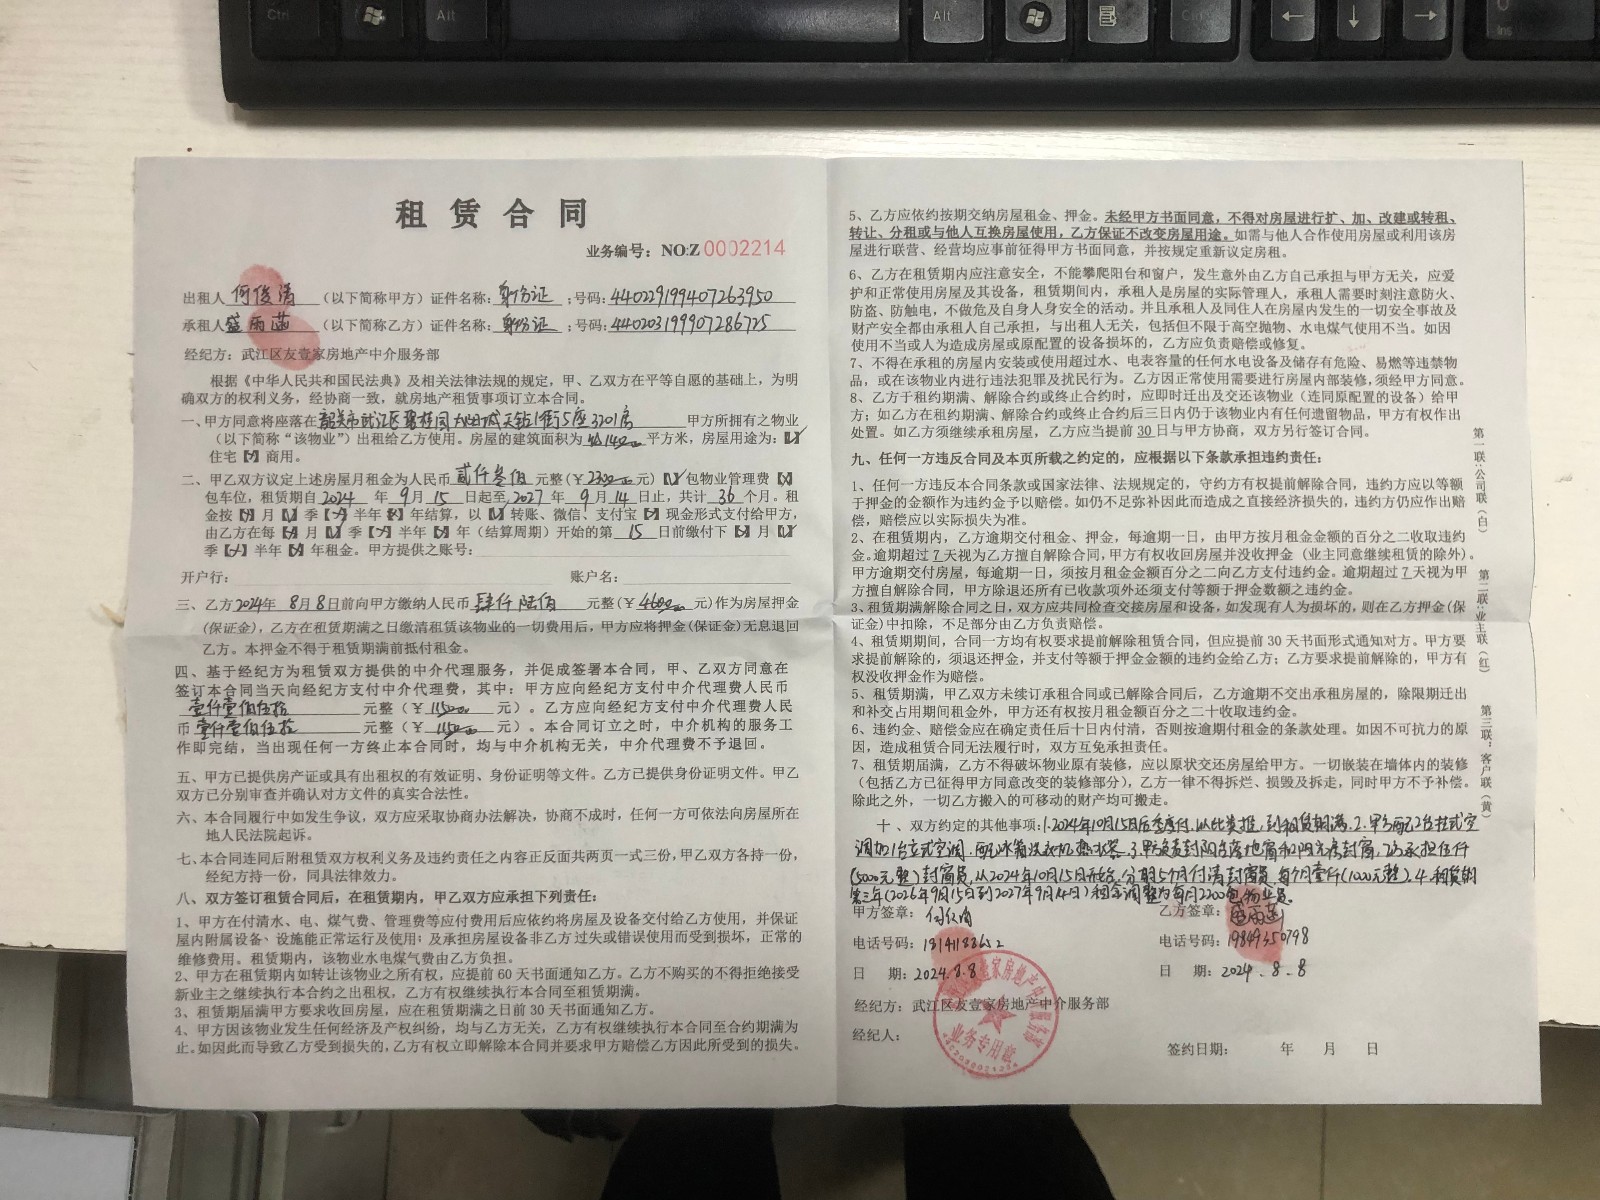 租赁合同
业务编号：NO:Z 0002214
出租人 何俊清 （以下简称甲方）证件名称：身份证 ；号码：440229199407263950
承租人 盛雨菡 （以下简称乙方）证件名称：身份证 ；号码：440203199907286725
经纪方：武江区友壹家房地产中介服务部
根据《中华人民共和国民法典》及相关法律法规的规定，甲、乙双方在平等自愿的基础上，为明
确双方的权利义务，经协商一致，就房地产租赁事项订立本合同。
一、甲方同意将座落在 韶关市武江区碧桂园太阳城天钻1街5座3301房 甲方所拥有之物业
（以下简称“该物业”）出租给乙方使用。房屋的建筑面积为 140 平方米，房屋用途为：【√】
住宅【×】商用。
二、甲乙双方议定上述房屋月租金为人民币 贰仟叁佰 元整（￥2300.00元）【√】包物业管理费【×】
包车位，租赁期自 2024 年 9 月 15 日起至 2027 年 9 月 14 日止，共计 36 个月。租
金按【×】月【√】季【×】半年【×】年结算，以【√】转账、微信、支付宝【×】现金形式支付给甲方，
由乙方在每【×】月【√】季【×】半年【×】年（结算周期）开始的第 15 日前缴付下【×】月【√】
季【×】半年【×】年租金。甲方提供之账号：
开户行： 账户名：
三、乙方2024年 8月8日前向甲方缴纳人民币 肆仟陆佰 元整（￥4600.00 元）作为房屋押金
（保证金），乙方在租赁期满之日缴清租赁该物业的一切费用后，甲方应将押金（保证金）无息退回
乙方。本押金不得于租赁期满前抵付租金。
四、基于经纪方为租赁双方提供的中介代理服务，并促成签署本合同，甲、乙双方同意在
签订本合同当天向经纪方支付中介代理费，其中：甲方应向经纪方支付中介代理费人民币
壹仟壹佰伍拾 元整（￥1150.00 元）。乙方应向经纪方支付中介代理费人民
币 壹仟壹佰伍拾 元整（￥1150.00 元）。本合同订立之时，中介机构的服务工
作即完结，当出现任何一方终止本合同时，均与中介机构无关，中介代理费不予退回。
五、甲方已提供房产证或具有出租权的有效证明、身份证明等文件。乙方已提供身份证明文件。甲乙
双方已分别审查并确认对方文件的真实合法性。
六、本合同履行中如发生争议，双方应采取协商办法解决，协商不成时，任何一方可依法向房屋所在
地人民法院起诉。
七、本合同连同后附租赁双方权利义务及违约责任之内容正反面共两页一式三份，甲乙双方各持一份，
经纪方持一份，同具法律效力。
八、双方签订租赁合同后，在租赁期内，甲乙双方应承担下列责任：
1、甲方在付清水、电、煤气费、管理费等应付费用后应依约将房屋及设备交付给乙方使用，并保证
屋内附属设备、设施能正常运行及使用；及承担房屋设备非乙方过失或错误使用而受到损坏，正常的
维修费用。租赁期内，该物业水电煤气费由乙方负担。
2、甲方在租赁期内如转让该物业之所有权，应提前60天书面通知乙方。乙方不购买的不得拒绝接受
新业主之继续执行本合约之出租权，乙方有权继续执行本合同至租赁期满。
3、租赁期届满甲方要求收回房屋，应在租赁期满之日前30天书面通知乙方。
4、甲方因该物业发生任何经济及产权纠纷，均与乙方无关，乙方有权继续执行本合同至合约期满为
止。如因此而导致乙方受到损失的，乙方有权立即解除本合同并要求甲方赔偿乙方因此所受到的损失。
5、乙方应依约按期交纳房屋租金、押金。未经甲方书面同意，不得对房屋进行扩、加、改建或转租、
转让、分租或与他人互换房屋使用，乙方保证不改变房屋用途。如需与他人合作使用房屋或利用该房
屋进行联营、经营均应事前征得甲方书面同意，并按规定重新议定房租。
6、乙方在租赁期内应注意安全，不能攀爬阳台和窗户，发生意外由乙方自己承担与甲方无关，应爱
护和正常使用房屋及其设备，租赁期间内，承租人是房屋的实际管理人，承租人需要时刻注意防火、
防盗、防触电，不做危及自身人身安全的活动。并且承租人及同住人在房屋内发生的一切安全事故及
财产安全都由承租人自己承担，与出租人无关，包括但不限于高空抛物、水电煤气使用不当。如因
使用不当或人为造成房屋或原配置的设备损坏的，乙方应负责赔偿或修复。
7、不得在承租的房屋内安装或使用超过水、电表容量的任何水电设备及储存有危险、易燃等违禁物
品，或在该物业内进行违法犯罪及扰民行为。乙方因正常使用需要进行房屋内部装修，须经甲方同意。
8、乙方于租约期满、解除合约或终止合约时，应即时迁出及交还该物业（连同原配置的设备）给甲
方；如乙方在租约期满、解除合约或终止合约后三日内仍于该物业内有任何遗留物品，甲方有权作出
处置。如乙方须继续承租房屋，乙方应当提前30日与甲方协商，双方另行签订合同。
九、任何一方违反合同及本页所载之约定的，应根据以下条款承担违约责任：
1、任何一方违反本合同条款或国家法律、法规规定的，守约方有权提前解除合同，违约方应以等额
于押金的金额作为违约金予以赔偿。如仍不足弥补因此而造成之直接经济损失的，违约方仍应作出赔
偿，赔偿应以实际损失为准。
2、在租赁期内，乙方逾期交付租金、押金，每逾期一日，由甲方按月租金金额的百分之二收取违约
金。逾期超过7天视为乙方擅自解除合同，甲方有权收回房屋并没收押金（业主同意继续租赁的除外）。
甲方逾期交付房屋，每逾期一日，须按月租金金额百分之二向乙方支付违约金。逾期超过7天视为甲
方擅自解除合同，甲方除退还所有已收款项外还须支付等额于押金数额之违约金。
3、租赁期满解除合同之日，双方应共同检查交接房屋和设备，如发现有人为损坏的，则在乙方押金（保
证金）中扣除，不足部分由乙方负责赔偿。
4、租赁期期间，合同一方均有权要求提前解除租赁合同，但应提前30天书面形式通知对方。甲方要
求提前解除的，须退还押金，并支付等额于押金金额的违约金给乙方；乙方要求提前解除的，甲方有
权没收押金作为赔偿。
5、租赁期满，甲乙双方未续订承租合同或已解除合同后，乙方逾期不交出承租房屋的，除限期迁出
和补交占用期间租金外，甲方还有权按月租金额百分之二十收取违约金。
6、违约金、赔偿金应在确定责任后十日内付清，否则按逾期付租金的条款处理。如因不可抗力的原
因，造成租赁合同无法履行时，双方互免承担责任。
7、租赁期届满，乙方不得破坏物业原有装修，应以原状交还房屋给甲方。一切嵌装在墙体内的装修
（包括乙方已征得甲方同意改变的装修部分），乙方一律不得拆烂、损毁及拆走，同时甲方不予补偿。
除此之外，一切乙方搬入的可移动的财产均可搬走。
十、双方约定的其他事项：1.2024年10月15日后季度付，以此类推，到租赁期满。2.甲方配2台挂式空
调加1台立式空调，配冰箱洗衣机热水器。3.甲方负责封阳台落地窗和阳光房封窗，乙方承担伍仟
（5000元整）封窗费，从2024年10月15日开始，分期5个月付清封窗费，每个月壹仟（1000元整）。4.租赁期
第三年（2026年9月15日到2027年9月14日）租金调整为每月2200包物业费。
甲方签章： 乙方签章：盛雨菡
电话号码： 电话号码：19849350798
日 期：2024.8.8 日 期：2024.8.8
经纪方：武江区友壹家房地产中介服务部
经纪人：
签约日期： 年 月 日
业务专用章
第一联：公司联（白）
第二联：业主联（红）
第三联：客户联（黄）
Ctrl
Alt
Alt
Ctrl
Ins